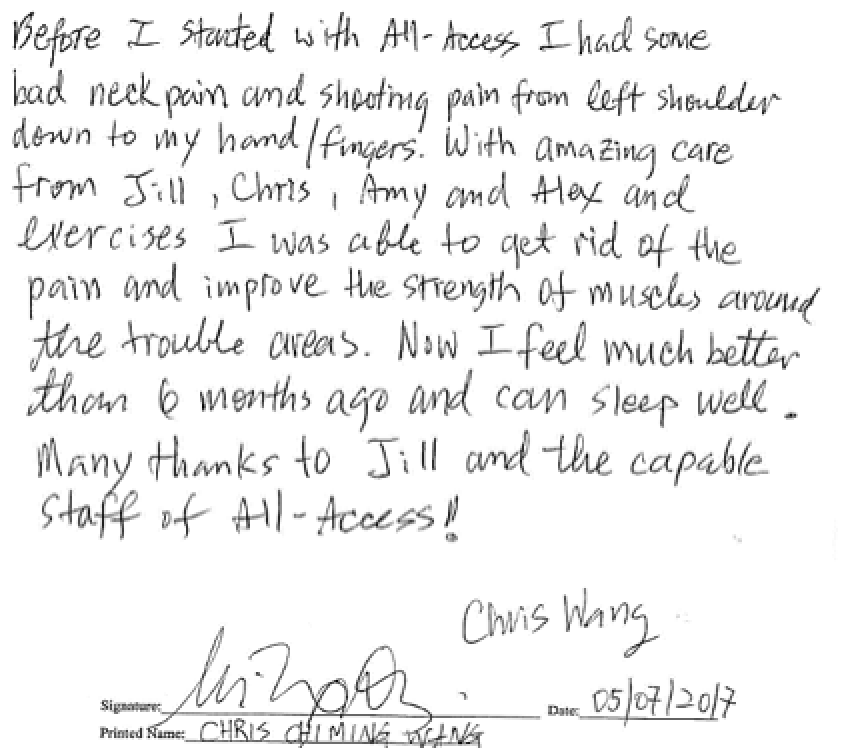 Before I started with All-Access I had some
bad neck pain and shooting pain from left shoulder
down to my hand/fingers. With amazing care
from Jill, Chris, Amy and Alex and
exercises I was able to get rid of the
pain and improve the strength of muscles around
the trouble areas. Now I feel much better
than 6 months ago and can sleep well.
Many thanks to Jill and the capable
staff of All-Access!!
Chris Wang
Signature: Date: 05/07/2017
Printed Name: CHRIS CHIMING WANG